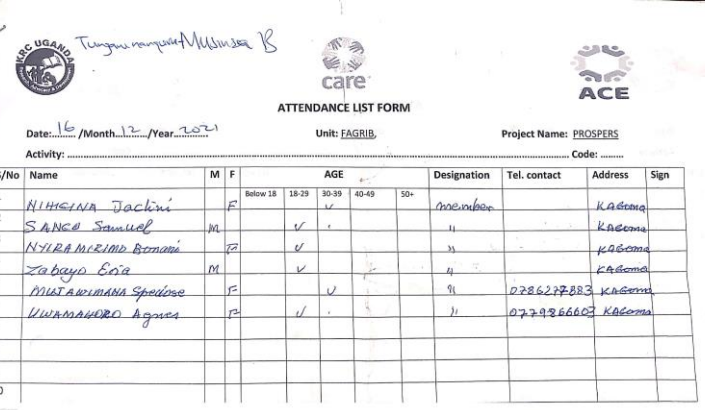 KRC UGANDA
Musinga B
care
ACE
ATTENDANCE LIST FORM
Date: 16 /Month 12 /Year 2021 Unit: FAGRIB, Project Name: PROSPERS
Activity: Code:
S/No Name M F AGE Designation Tel. contact Address Sign
Below 18 18-29 30-39 40-49 50+
Jaclini F ✓ member Kagoma
SANGO Samuel M ✓ " Kagoma
NYIRAMIRIMO Bonami F ✓ " Kagoma
Zabayo Eria M ✓ " Kagoma
MUTAWIMANA Spedose F ✓ " 0786277883 Kagoma
UWAMAHORO Agnes F ✓ " 0779866603 Kagoma